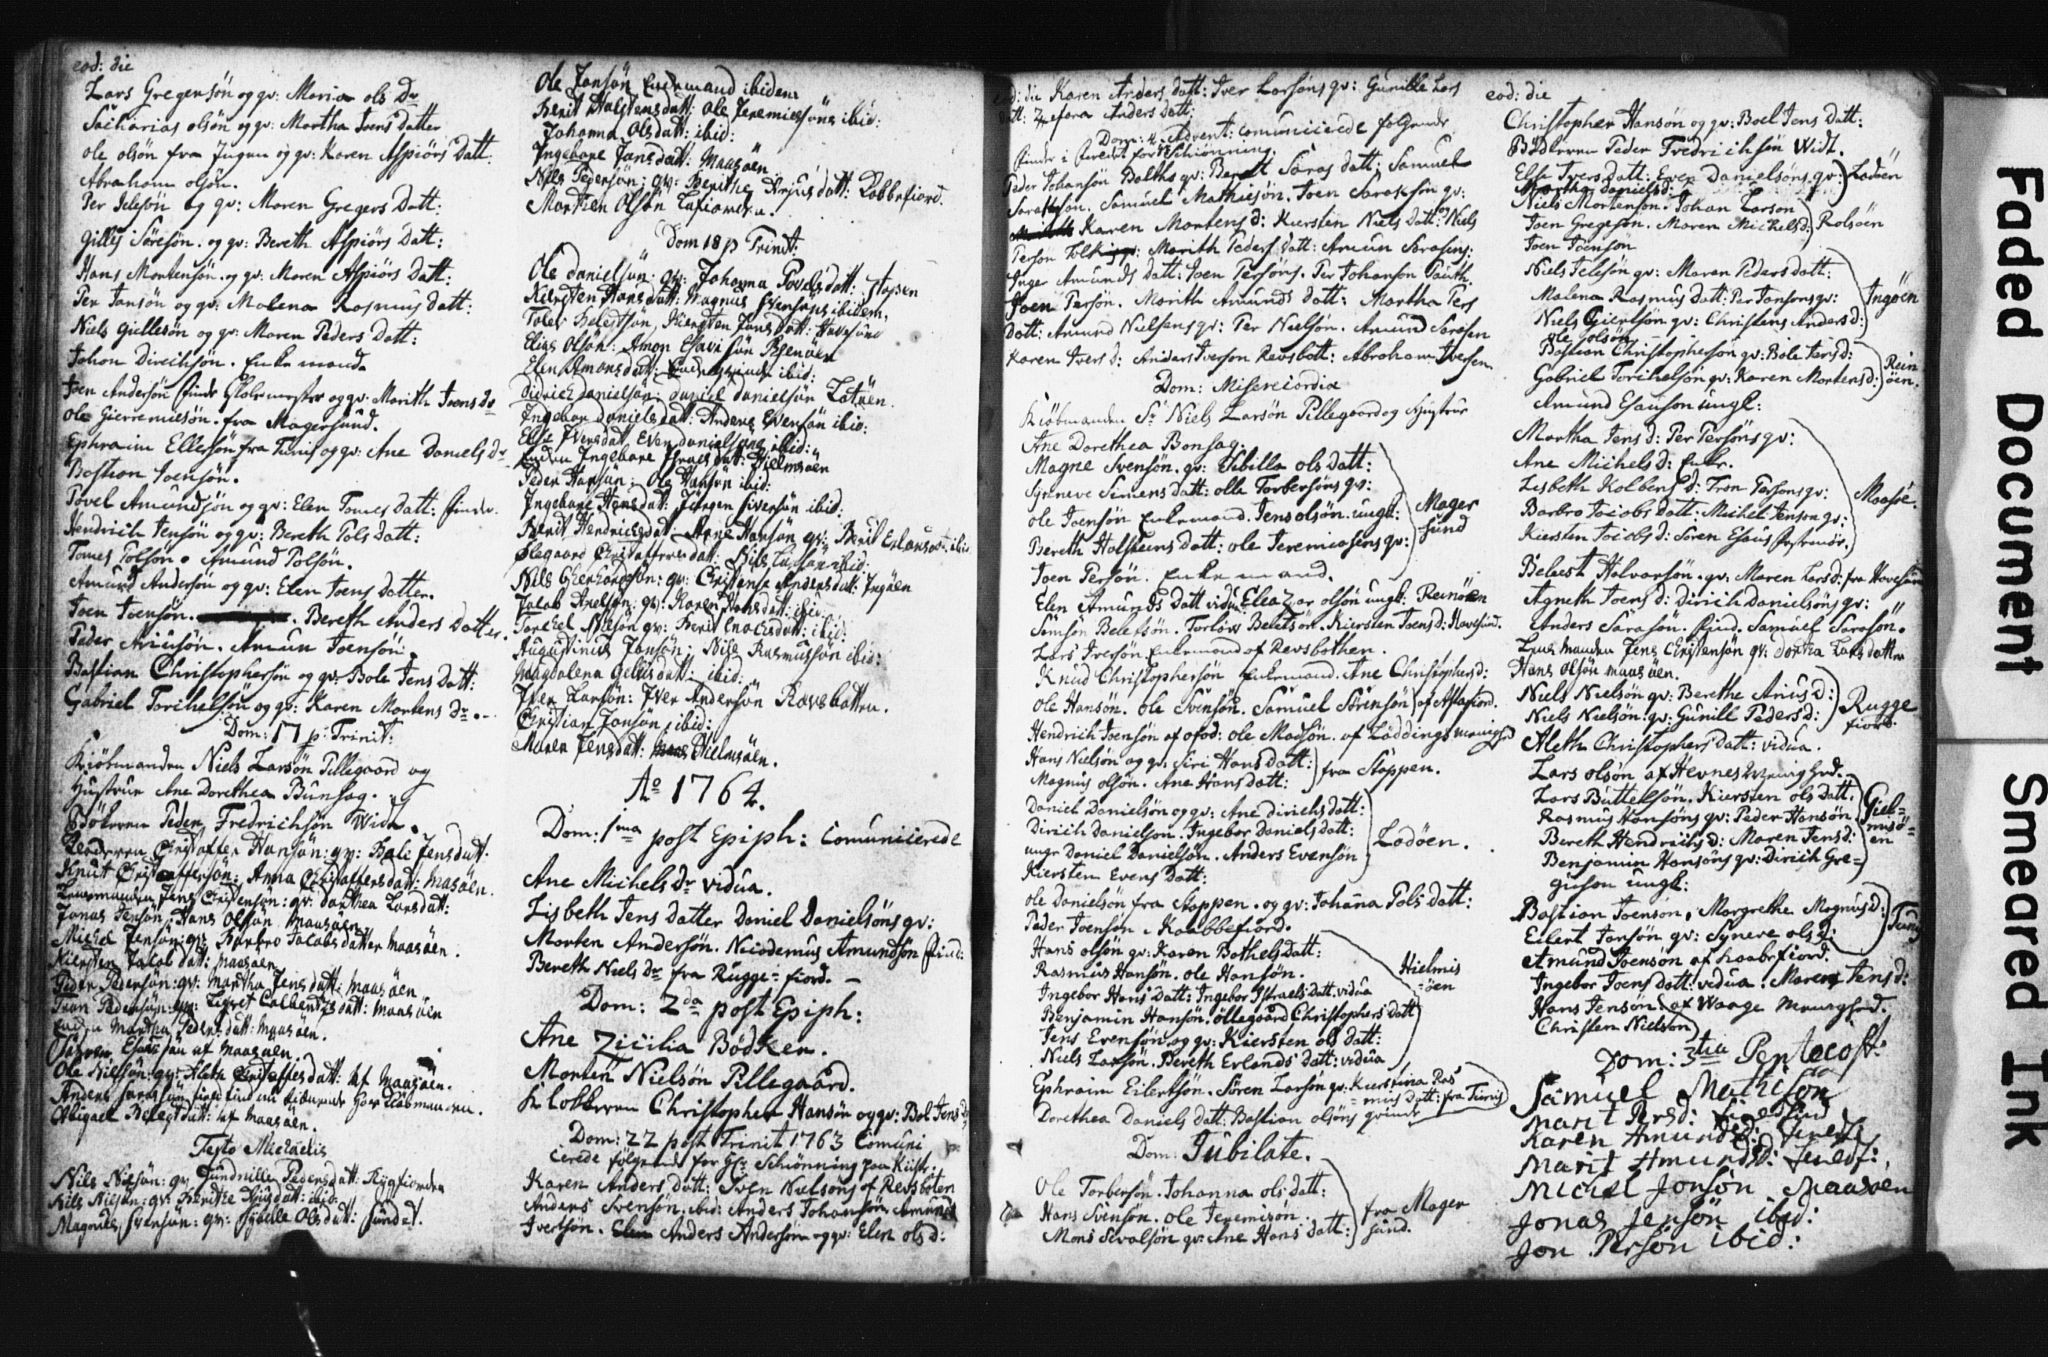 eod: die
Lars Gregersön og qv: Maria ols Dr
Sacharias olsön og qv: Martha Joens Datter
ole olsön fra Jugun og qv: Karen Aspiörs Datt:
Abraham olsön.
Per Jelsön og qv: Maren Gregers Datt:
Gilles Söresön. og qv: Bereth Aspiörs Datt:
Hans Mortensön. og qv: Maren Aspiörs Datt:
Per Jansön og qv: Malena Rasmus Datt:
Niels Gillesön og qv: Maren Peders Datt:
Johan Dirichsön. Enkemand.
Joen Andersön og qv: Marith Joens Dr
ole Gierremiesön. fra Magersund.
Ephraim Ellersön fra Tunis og qv: Ane Daniels dr
Bastian Joensön.
Povel Amundsön og qv: Elen Tomes Datt:
Hendrich Jensön og qv: Bereth Pols Datt:
Tomes Polsön. Amund Polsön.
Amund Andersön og qv: Elen Joens Datter.
Joen Joensön. Bereth Anders Datter.
Peder Ariusön. Amun Joensön.
Bastian Christophersön og qv: Bole Jens Datt:
Gabriel Torichelsön og qv: Karen Mortens Dr.
Dom: 17 p: Trinit:
Kiöbmanden Niels Larsön Pillegaard og
Hustrue Ane Dorethea Bunsag.
Bödkeren Peder Fredrichsön Widt.
Christopher Hansön: qv: Bole Jensdatt:
Knut Christoffersön: Anna Christophersdatt: Masöen.
Jens Christensön: qv: Dorthea Larsdatt:
Jonas Jensön, Hans Olsön Maasöen
Michel Jensön: qv: Barbro Jacobsdatter Maasöen.
Kiersten Jacobsdatt: Maasöen
Peder Pedersön: qv: Martha Jensdatt: Maasöen
Tron Pedersön: qv: Lisbet Colbendsdatt: Maasöen
Enken Martha Pedersdatt: Maasöen.
Sören Esausön af Maasöen.
Ole Nilsön: qv: Aleth Christoffersdatt: af Maasöen.
Anders Sarasön
Abigael Belestdatt: af Maasöen.
Festo Michaelis
Nils Nilsön: qv: Gundrille Pedersdatt: Rugfiorden
Nils Nilsön: qv: Berithe Arjusdatt: ibid:
Magnus Svensön: qv: Sybille Olsdatt: Sundet.
Ole Jansön Enkemand ibidem
Berit Halstensdatt: Ole Jeremiessöns ibid:
Johanna Olsdatt: ibid:
Ingebore Jansdatt: Maasöen
Nils Pedersön: qv: Berithe Arjusdatt: Kobbefiord.
Morten Olsön Lafiorden.
Dom 18 p Trinit:
Ole Danielsön: qv: Johanna Povelsdatt: Stappen
Kiersten Hansdatt: Magnus Svensöns ibidem.
Toler Belestsön, Kiersten Jansdatt: Havesund
Elias Olsön: Amon Esavisön Renöen
Elen Amonsdatt: Enkeqvinde ibid:
Didrich Danielsön: Daniel Danielsön Latöen.
Ingebor Danielsdatt: Anders Evensön ibid:
Else Iversdatt, Even Danielsöns ibid:
Enken Ingebore Israelsdatt: Hielmsöen
Peder Hansön: Ole Hansön ibid:
Ingebore Hansdatt: Jörgen Siversön ibid:
Berit Hendrichsdatt: Arne Hansön qv: Berit Erlandsdatt: ibid
Olegaard Christoffersdatt: Nils Larsön ibid:
Nils Gierhardsön: qv: Christense Andersdatt: Ingöen
Jacob Axelsön: qv: Karen Hansdatt: ibid:
Torchel Nilsön qv: Berit Enochsdatt: ibid:
Augustinus Jansön: Nils Rasmussön ibid:
Magdalena Gilesdatt: ibid:
Iver Larsön: Iver Andersön Ravsbotten.
Christian Jonsön ibid:
Maren Jensdatt: Hielmsöen.
Ao 1764.
Dom: 1ma post Epiph: Comunicerede
Ane Michels dr vidua.
Lisbeth Jens datter Daniel Danielsöns qv:
Morten Andersön. Nicodemus Amundsön find:
Bereth Niels dr fra Rugge-fiord.
Dom: 2da post Epiph:
Ane Zicilia Bödker.
Morten Nielsön Pillegaard.
Klokkeren Christopher Hansön og qv: Bol Jens Dr
Dom: 22 post Trinit 1763 Comuni
cerede følgende for Hr Schiönning paa Kistr:
Karen Anders Datt: Sven Nielsöns af Revsboten
Anders Svensön. ibid: Anders Johansön. Amund
Ivertsön. Anders Andersön og qv: Elen ols d:
eod: die Karen Anders datt: Iver Larsöns qv: Gunille Lars
Datt: Zefora Anders datt:
Dom: 4 Advent: Comunicerede følgende
finder i Qverlid for Hr Schiönning.
Peder Johansön Balths qv: Beret Saras datt: Samuel
Saraksön. Samuel Mathiesön. Joen Saraksön qv:
Karen Mortens d: Kiersten Niels Datt: Niels
Person Marith Peders Datt: Amun Sarasens:
Inger Amunds Datt: Joen Persöns. Per Johanson
Joen Persön. Marith Amunds datt: Martha Pers
Datt: Amund Nielsens qv: Per Nielsön. Amund Sarasen
Karen Ivers d: Anders Iverson Revsbott: Abraham Iversen.
Dom: Misericordia
Kiöbmanden Sr Niels Larsön Pillegaard og Hustrue
Ane Dorethea Bonsag.
Magne Svensön. qv: Sibilla ols datt:
Synneve Simens datt: olle Torbersöns qv:
ole Joensön Enkemand. Jens olsön. ungk:
Bereth Holsteins datt: ole Jeremiasens qv:
Mager
sund
Joen Persön. Enkemand.
Elen Amunds Datt vidua Eleazar olsön ungk: Reinöen
Simson Beletsön. Torlow Beretsön. Kiersten Joens d: Havesund.
Lars Iversön Enkemand af Revsbotten.
Knud Christophersön Enkemand. Ane Christophers d:
ole Hansön. ole Svensön. Samuel Sörensön af Astafiord.
Hendrich Joensön af ofod: ole Madsön. af Loddings menighed
Hans Nielsön og qv: Siri Hans datt:
Magnus olsön. Ane Hans datt:
fra Stappen.
Daniel Danielsön og qv: Ane dirichs datt:
Dirich Danielsön. Ingebor Daniels datt:
unge Daniel Danielsön. Anders Evensön
Kiersten Evens Datt:
Lodöen.
ole Danielsön fra Stoppen. og qv: Johana Pols datt:
Peder Joensön i Kaabbefiord.
Hans olsön qv: Karen Bothels Datt:
Rasmus Hansön. ole Hansön.
Ingebor Hans Datt: Ingebor Israels Datt. vidua
Benjamin Hansön. öllegaard Christophers datt
Jens Evensön og qv: Kiersten ols datt:
Niels Larsön. Bereth Erlands datt: vidua
Hielmis
-öen
Ephraim Eilertsön. Sören Larsön qv. Kurstina Ras
-mus datt: fra Tunis
Dorethea Daniels Datt: Bastian olsöns qvinde
Dom: Jubilate.
Ole Torbersön. Johanna ols datt:
Hans Svensön. ole Jeremisön.
Mons Sivalsön qv: Ane Hans datt:
fra Mager
sund.
eod: die
Christopher Hansön og qv: Boel Jens datt:
Bödkeren Peder Fredrichsön Widt.
Else Ivers datt: Even Danielsöns qv:
Martha Daniels d:
Lodöen
Niels Mortensön. Johan Larsön
Joen Gregesön. Maren Michels d:
Joen Joensön
Rolsöen
Niels Jelesön qv: Maren Peders datt:
Malena Rasmus Datt: Per Jansons qv:
Niels Giertsön qv: Christens Anders d:
ole olsön
Ingöen
Bastian Christophersön qv: Bole Jens d:
Gabriel Torichelsön qv: Karen Mortens d:
Amund Esauson ungk:
Rein
öen.
Martha Jens d: Per Persöns qv:
Ane Michels d: Enke.
Lisbeth Kolbens d: Tron Persons qv:
Barbro Jacobs datt: Michel Jensons qv:
Kiersten Jacobs d: Sören Esaus
Maasöe.
Belaest Halvorsön. qv: Maren Lars d: fra Havesund
Agneth Joens d: Dirich Danielsöns qv:
Anders Sarasön. find. Samuel Sarasön.
Lens manden Jens Christensön qv: Dorthea Lars datter
Hans olsön maasöen.
Niels Nielsön qv: Berethe Arius d:
Niels Nielsön qv: Gunill Peders d:
Rugge
fiord.
Aleth Christophers datt: vidua.
Lars olsön af Hevnes Menighed.
Lars Büttelsön. Kiersten ols datt.
Rasmus Hansöns qv: Peder Hansön
Bereth Hendrichs d: Maren Jens d:
Benjamin Hansöns qv: Dirich Gre=
guson ungk:
Giel=
misö=
en
Bastian Joensön. Margrethe Magnus d:
Eilert Jonsön qv: Synneve ols d:
Tunis
Amund Joenson af Kaabefiord.
Ingebor Joens datt: vidua. Maren Jens d:
Hans Jensön af Waage Menighed.
Christen Nielson
Dom: 3tia Pentecost:
Samuel Mathisön
Marit Pers d:
Karen Amunds d:
Marit Amunds d:
Michel Jonsön Maasöen
Jonas Jensön ibid:
Jon Persön ibid:
Faded Document
Smeared Ink